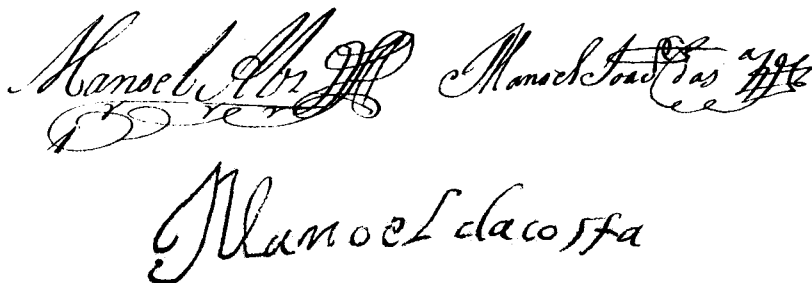 Manoel Abr
Manoel Joaõ das
Manoel dacosta